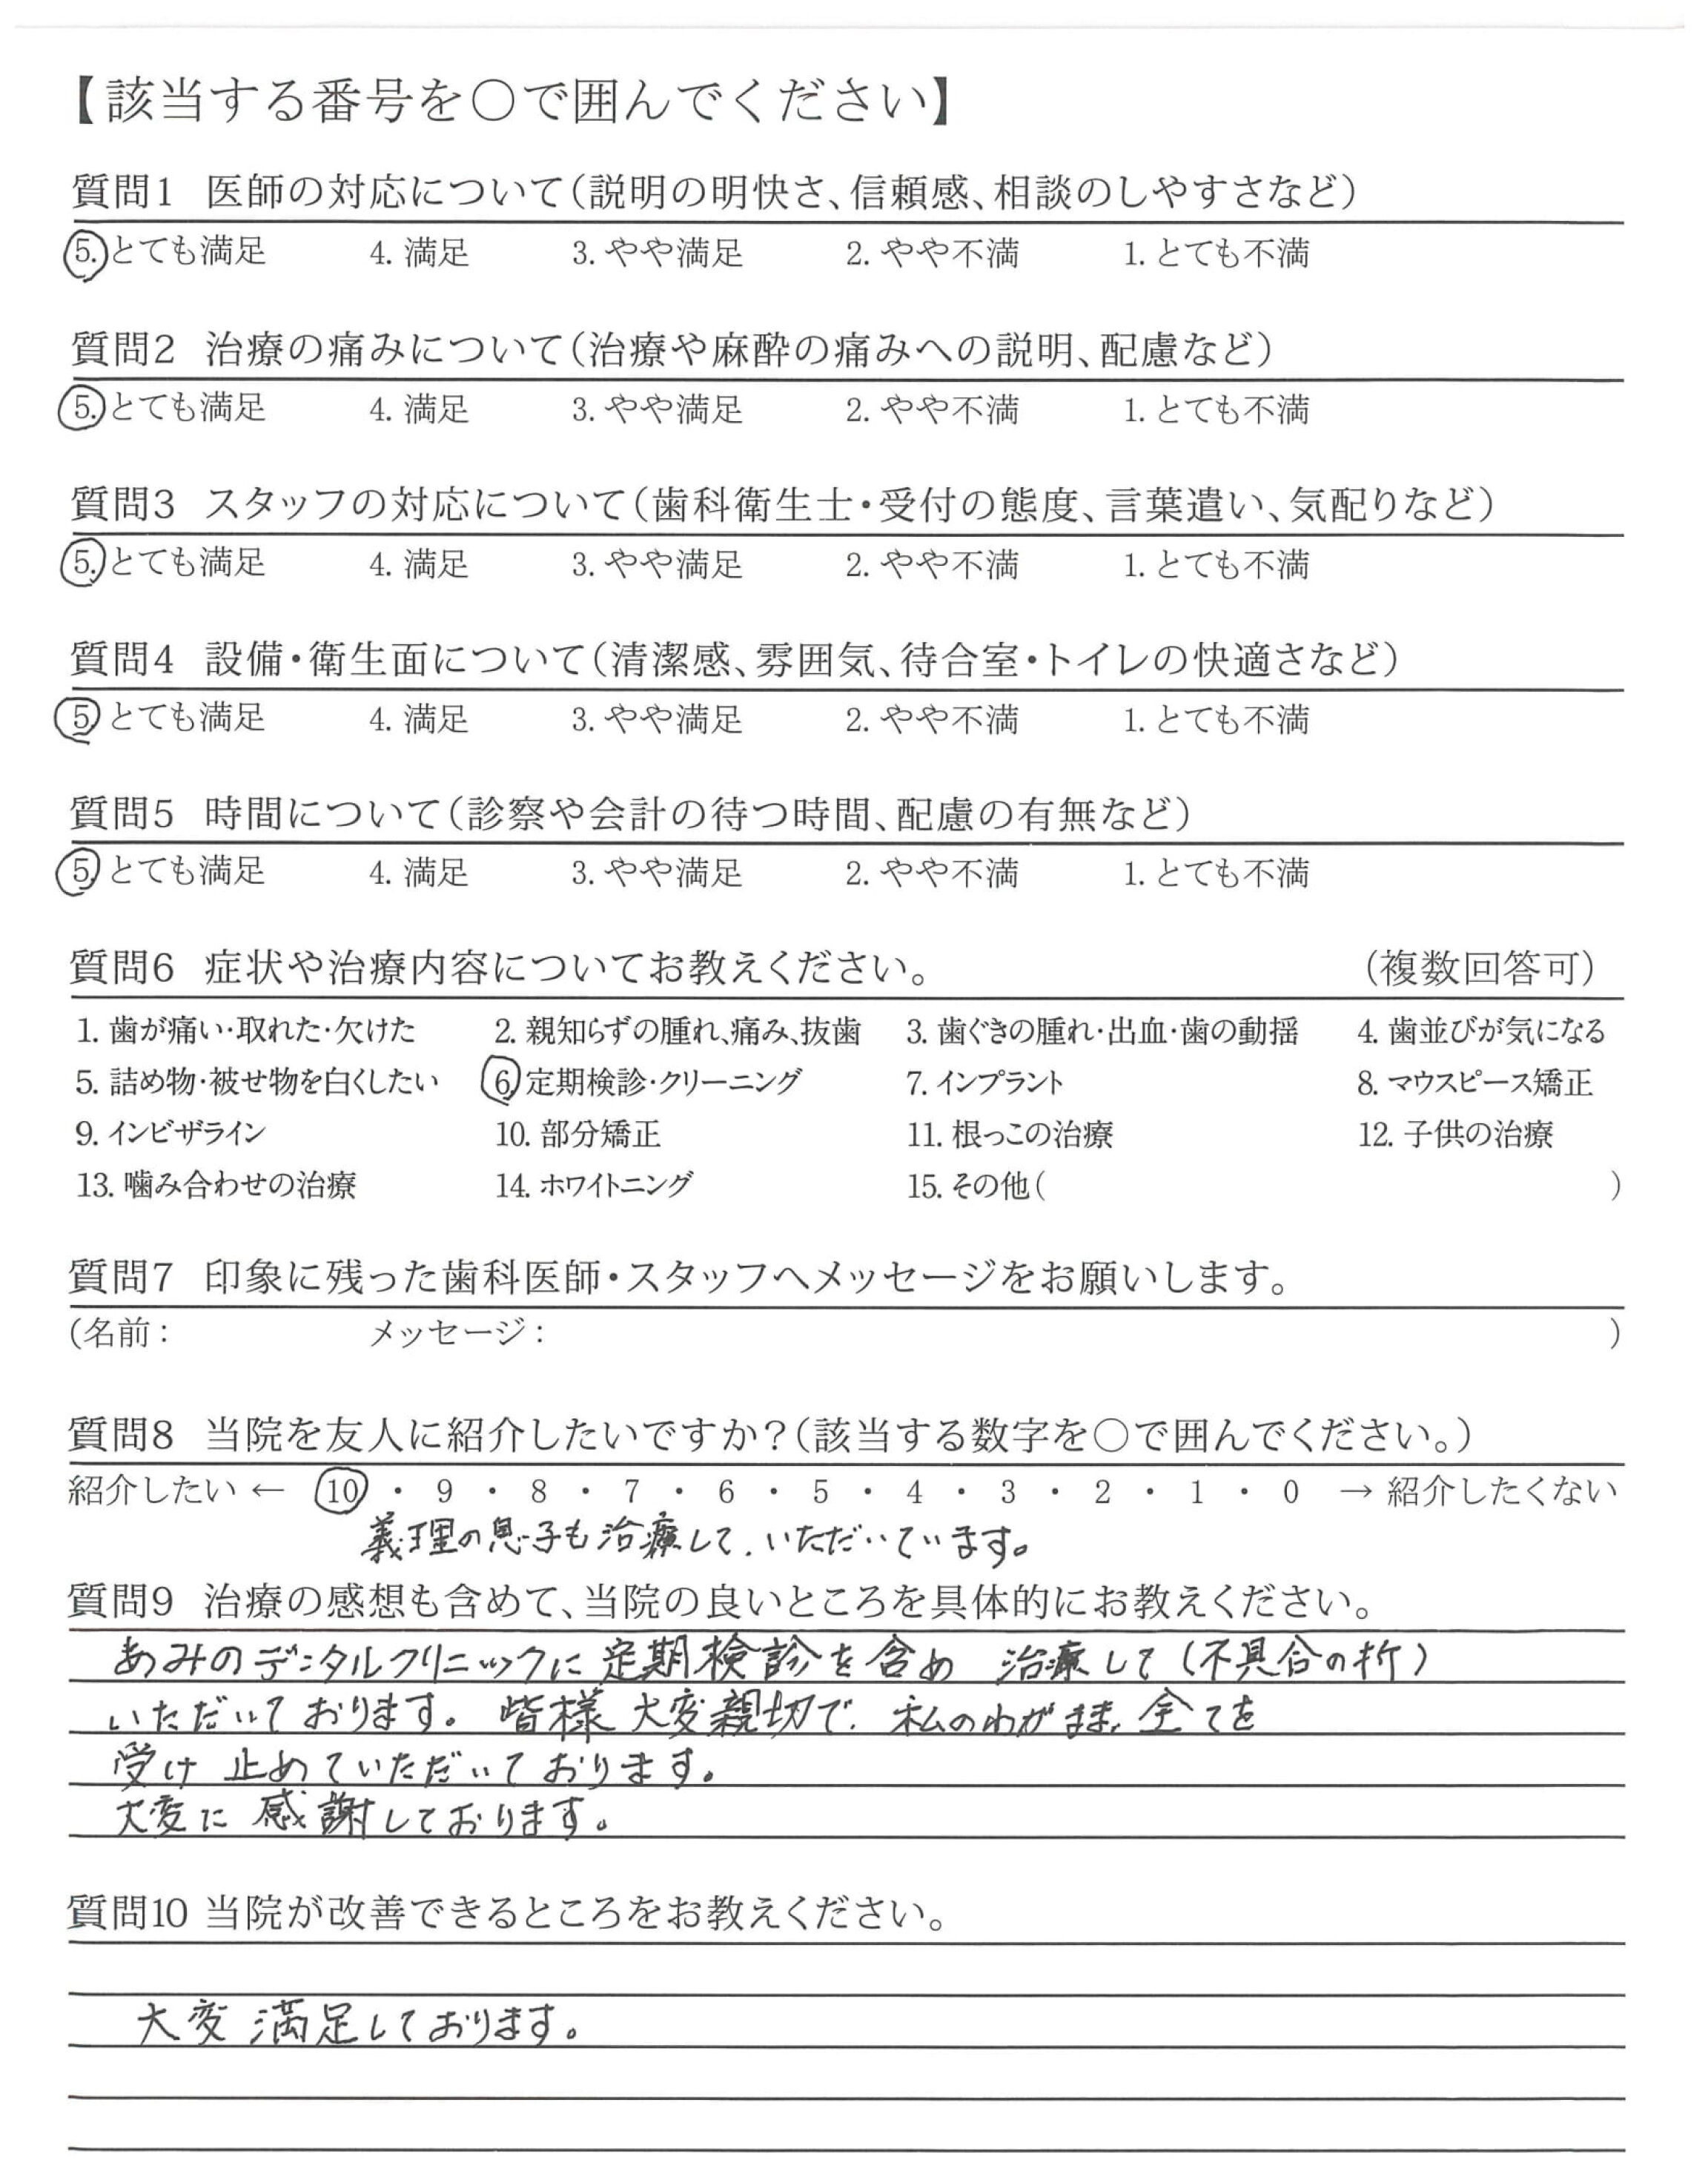 【該当する番号を〇で囲んでください】
質問1 医師の対応について(説明の明快さ、信頼感、相談のしやすさなど)
5. とても満足 4. 満足 3. やや満足 2. やや不満 1. とても不満
質問2 治療の痛みについて(治療や麻酔の痛みへの説明、配慮など)
5. とても満足 4. 満足 3. やや満足 2. やや不満 1. とても不満
質問3 スタッフの対応について(歯科衛生士・受付の態度、言葉遣い、気配りなど)
5. とても満足 4. 満足 3. やや満足 2. やや不満 1. とても不満
質問4 設備・衛生面について(清潔感、雰囲気、待合室・トイレの快適さなど)
5. とても満足 4. 満足 3. やや満足 2. やや不満 1. とても不満
質問5 時間について(診察や会計の待つ時間、配慮の有無など)
5. とても満足 4. 満足 3. やや満足 2. やや不満 1. とても不満
質問6 症状や治療内容についてお教えください。 (複数回答可)
1. 歯が痛い・取れた・欠けた 2. 親知らずの腫れ、痛み、抜歯 3. 歯ぐきの腫れ・出血・歯の動揺 4. 歯並びが気になる
5. 詰め物・被せ物を白くしたい 6. 定期検診・クリーニング 7. インプラント 8. マウスピース矯正
9. インビザライン 10. 部分矯正 11. 根っこの治療 12. 子供の治療
13. 噛み合わせの治療 14. ホワイトニング 15. その他( )
質問7 印象に残った歯科医師・スタッフへメッセージをお願いします。
(名前: メッセージ: )
質問8 当院を友人に紹介したいですか?(該当する数字を〇で囲んでください。)
紹介したい ← 10 ・ 9 ・ 8 ・ 7 ・ 6 ・ 5 ・ 4 ・ 3 ・ 2 ・ 1 ・ 0 → 紹介したくない
義理の息子も治療して、いただいています。
質問9 治療の感想も含めて、当院の良いところを具体的にお教えください。
あみのデンタルクリニックに定期検診を含め 治療して(不具合の折)
いただいております。皆様 大変親切で、私のわがまま、全てを
受け止めていただいております。
大変に感謝しております。
質問10 当院が改善できるところをお教えください。
大変満足しております。